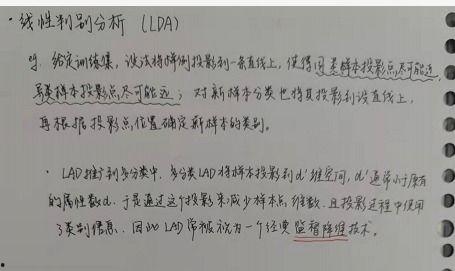 · 线性判别分析 (LDA)
给定训练集,设法将样例投影到一条直线上,使得同类样本投影点尽可能近,
异类样本投影点尽可能远;对新样本分类也将其投影到该直线上,
再根据投影点位置确定新样本的类别。
· LAD推广到多分类中,多分类LAD将样本投影到d'维空间,d'通常小于原有
的属性数d,于是通过这个投影来减少样本点维数,且投影过程中使用
了类别信息,因此LAD常被视为一个经典监督降维技术。